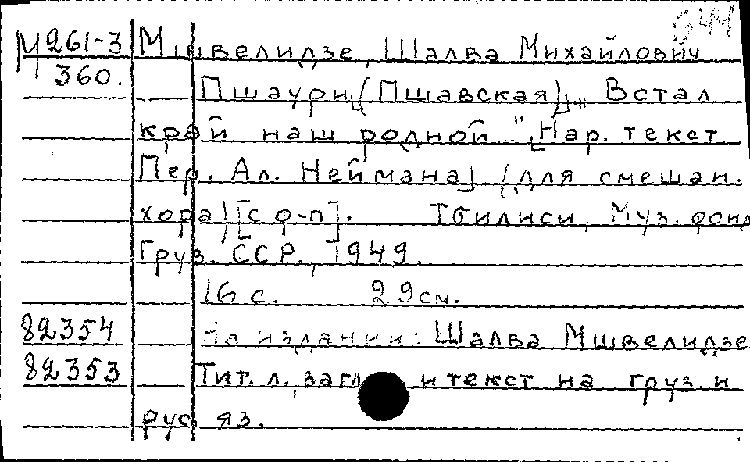 М 261-3 Мшвелидзе, Шалва Михайлович
360. Пшаури (Пшавская). „Встал
край наш родной". [Нар. текст
Пер. Ал. Неймана] (для смешан.
хора) [с ф-п]. Тбилиси, Муз. фонд
Груз. ССР, 1949.
16 с. 29 см.
82354 На издании: Шалва Мшвелидзе
82353 Тит. л., загл. и текст на груз. и
рус. яз.